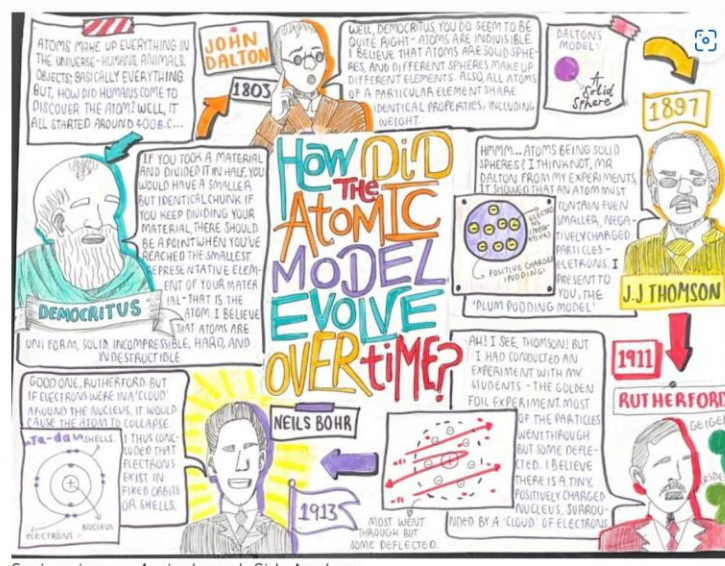 ATOMS MAKE UP EVERYTHING IN
THE UNIVERSE - HUMANS, ANIMALS,
OBJECTS; BASICALLY EVERYTHING
BUT, HOW DID HUMANS COME TO
DISCOVER THE ATOM? WELL, IT
ALL STARTED AROUND 400B.C...
JOHN
DALTON
1803
WELL, DEMOCRITUS, YOU DO SEEM TO BE
QUITE RIGHT - ATOMS ARE INDIVISIBLE.
I BELIEVE THAT ATOMS ARE SOLID SPHE-
RES, AND DIFFERENT SPHERES MAKE UP
DIFFERENT ELEMENTS. ALSO, ALL ATOMS
OF A PARTICULAR ELEMENT SHARE
IDENTICAL PROPERTIES, INCLUDING
WEIGHT.
DALTON'S
MODEL:
A
Solid
Sphere
1897
IF YOU TOOK A MATERIAL
AND DIVIDED IT IN HALF, YOU
WOULD HAVE A SMALLER
BUT IDENTICAL CHUNK. IF
YOU KEEP DIVIDING YOUR
MATERIAL, THERE SHOULD
BE A POINT WHEN YOU'VE
REACHED THE SMALLEST
REPRESENTATIVE ELEM-
ENT OF YOUR MATER
IAL - THAT IS THE
ATOM. I BELIEVE
THAT ATOMS ARE
UNIFORM, SOLID, INCOMPRESSIBLE, HARD, AND
INDESTRUCTIBLE.
DEMOCRITUS
HOW DiD
THE
AtOMIC
MODEL
EVOLVE
OVER tiME?
HMMM... ATOMS BEING SOLID
SPHERES? I THINK NOT, MR
DALTON. FROM MY EXPERIMENTS,
IT SHOWED THAT AN ATOM MUST
CONTAIN EVEN
SMALLER, NEGA-
TIVELY CHARGED
PARTICLES -
ELETRONS. I
PRESENT TO
YOU, THE
'PLUM PUDDING MODEL'
POSITIVE CHARGE
(PUDDING)
J.J THOMSON
1911
RUTHERFORD
GEIGER
AH! I SEE, THOMSON! BUT
I HAD CONDUCTED AN
EXPERIMENT WITH MY
STUDENTS - THE GOLDEN
FOIL EXPERIMENT. MOST
OF THE PARTICLES
WENT THROUGH
BUT SOME DEFLE-
CTED. I BELIEVE
THERE IS A TINY,
POSITIVELY CHARGED
NUCLEUS, SURROU-
NDED BY A 'CLOUD' OF ELECTRONS
MOST WENT
THROUGH BUT
SOME DEFLECTED.
NEILS BOHR
1913
GOOD ONE, RUTHERFORD. BUT
IF ELECTRONS WERE IN A 'CLOUD'
AROUND THE NUCLEUS, IT WOULD
CAUSE THE ATOM TO COLLAPSE.
I THUS CONC-
LUDED THAT
ELECTRONS
EXIST IN
FIXED ORBITS
OR SHELLS.
Ta-da~
SHELLS
NUCLEUS
ELECTRONS